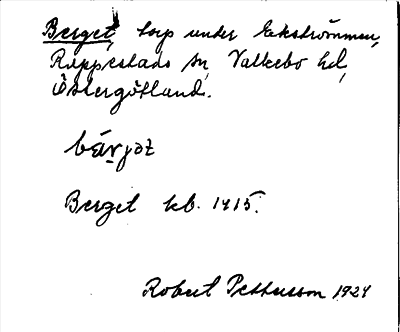 Berget, torp under Ekströmmen,
Rappestads sn, Valkebo hd,
Östergötland.
bärjət
Berget kb. 1915.
Robert Pettersson 1924